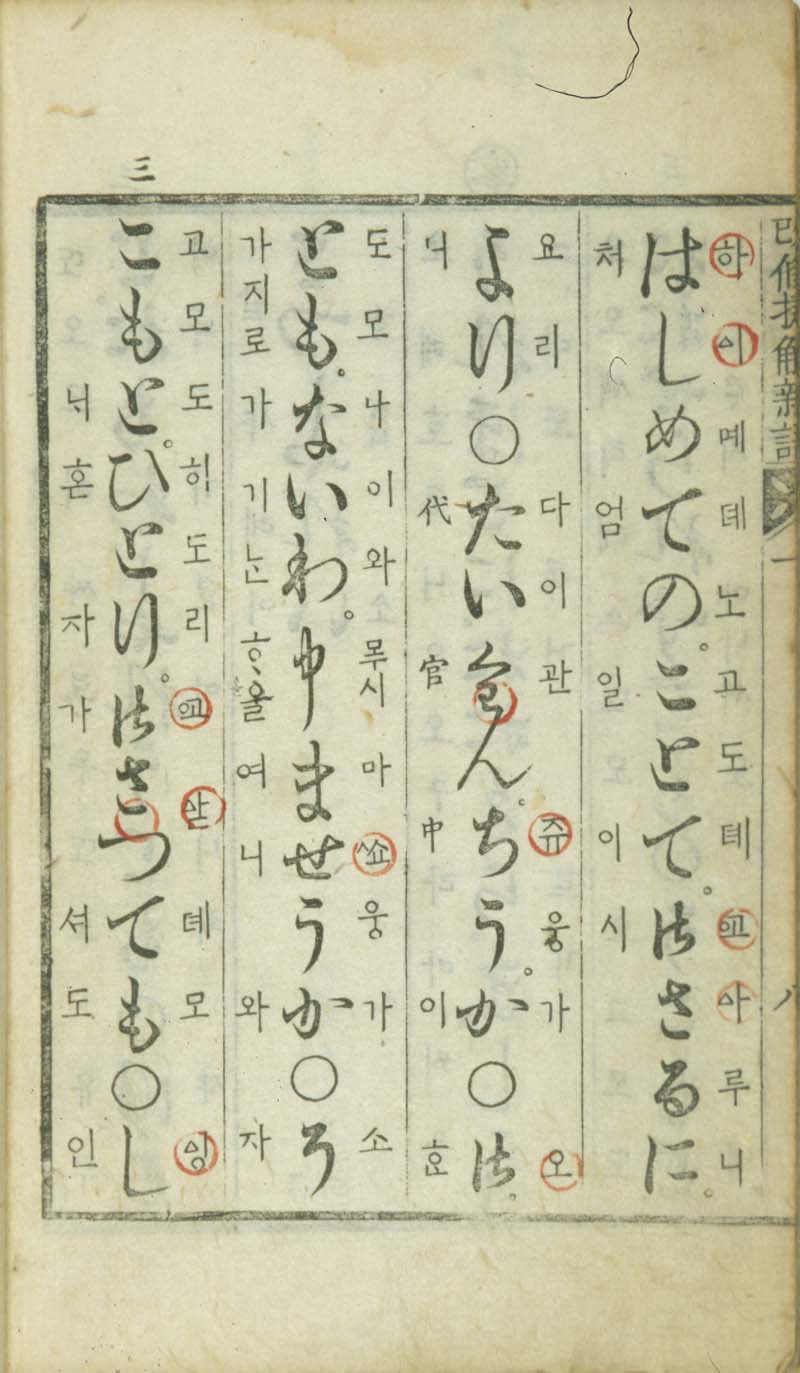 改修捷解新語 一 八
하 메뎨노고도 아루니
はしめての。ことて。御さるに。
처엄일이시
요리 다이관쥬웅가 오
より○たいくわん。ちう。か○御
니 代官中이 효
도모나이와 시마 웅가 소
とも。ないわ。申ませうか○そ
가지로가기ᄂᆞᆫᄒᆞ올여니와 자
고모도히도리 산뎨모
こもと。ひとり。御さつても○し
늬혼자가셔도 인
三